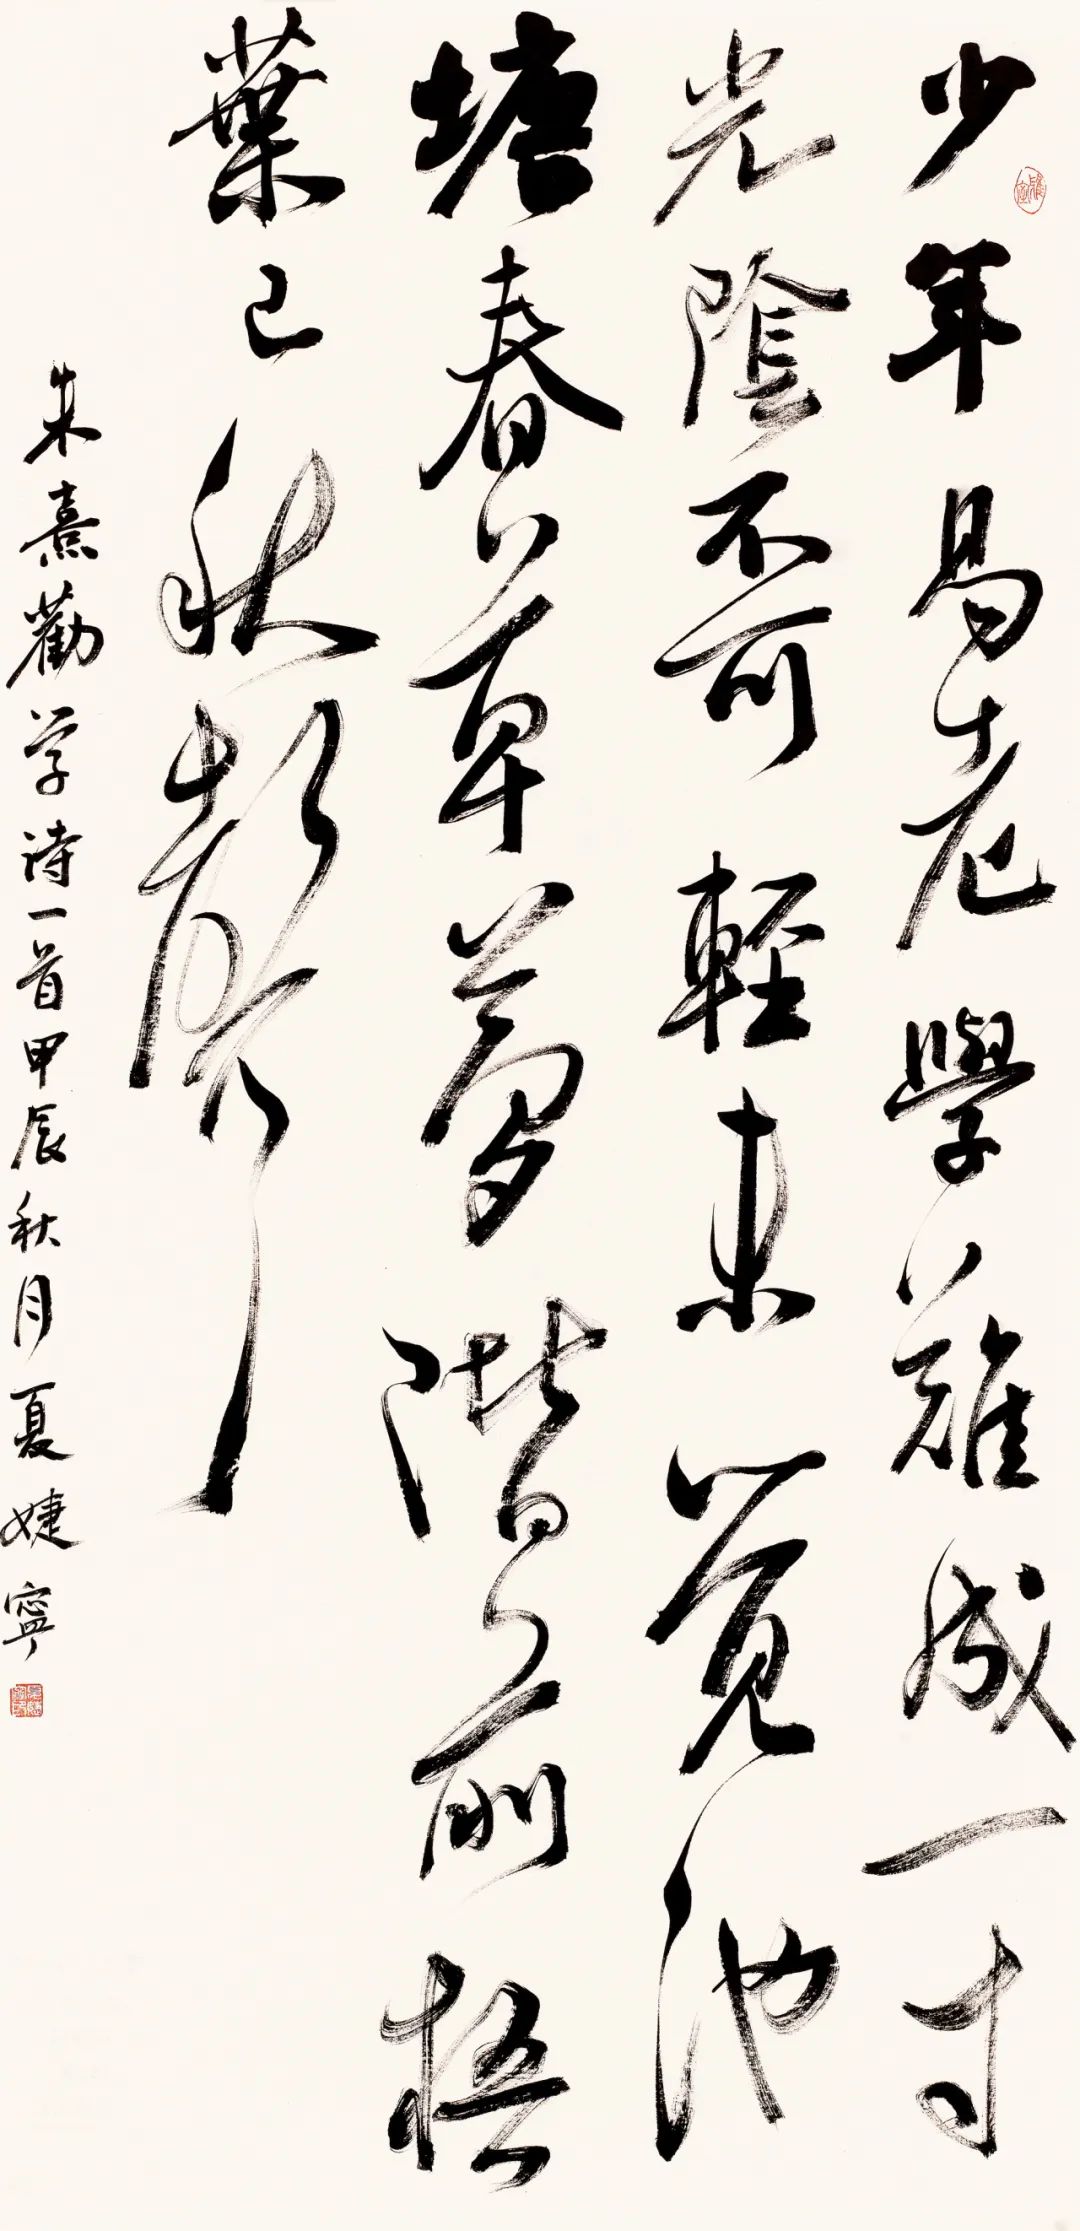 少年易老學難成一寸
光陰不可輕未覺池
塘春草夢階前梧
葉已秋聲
朱熹勸学诗一首甲辰秋月夏婕寧